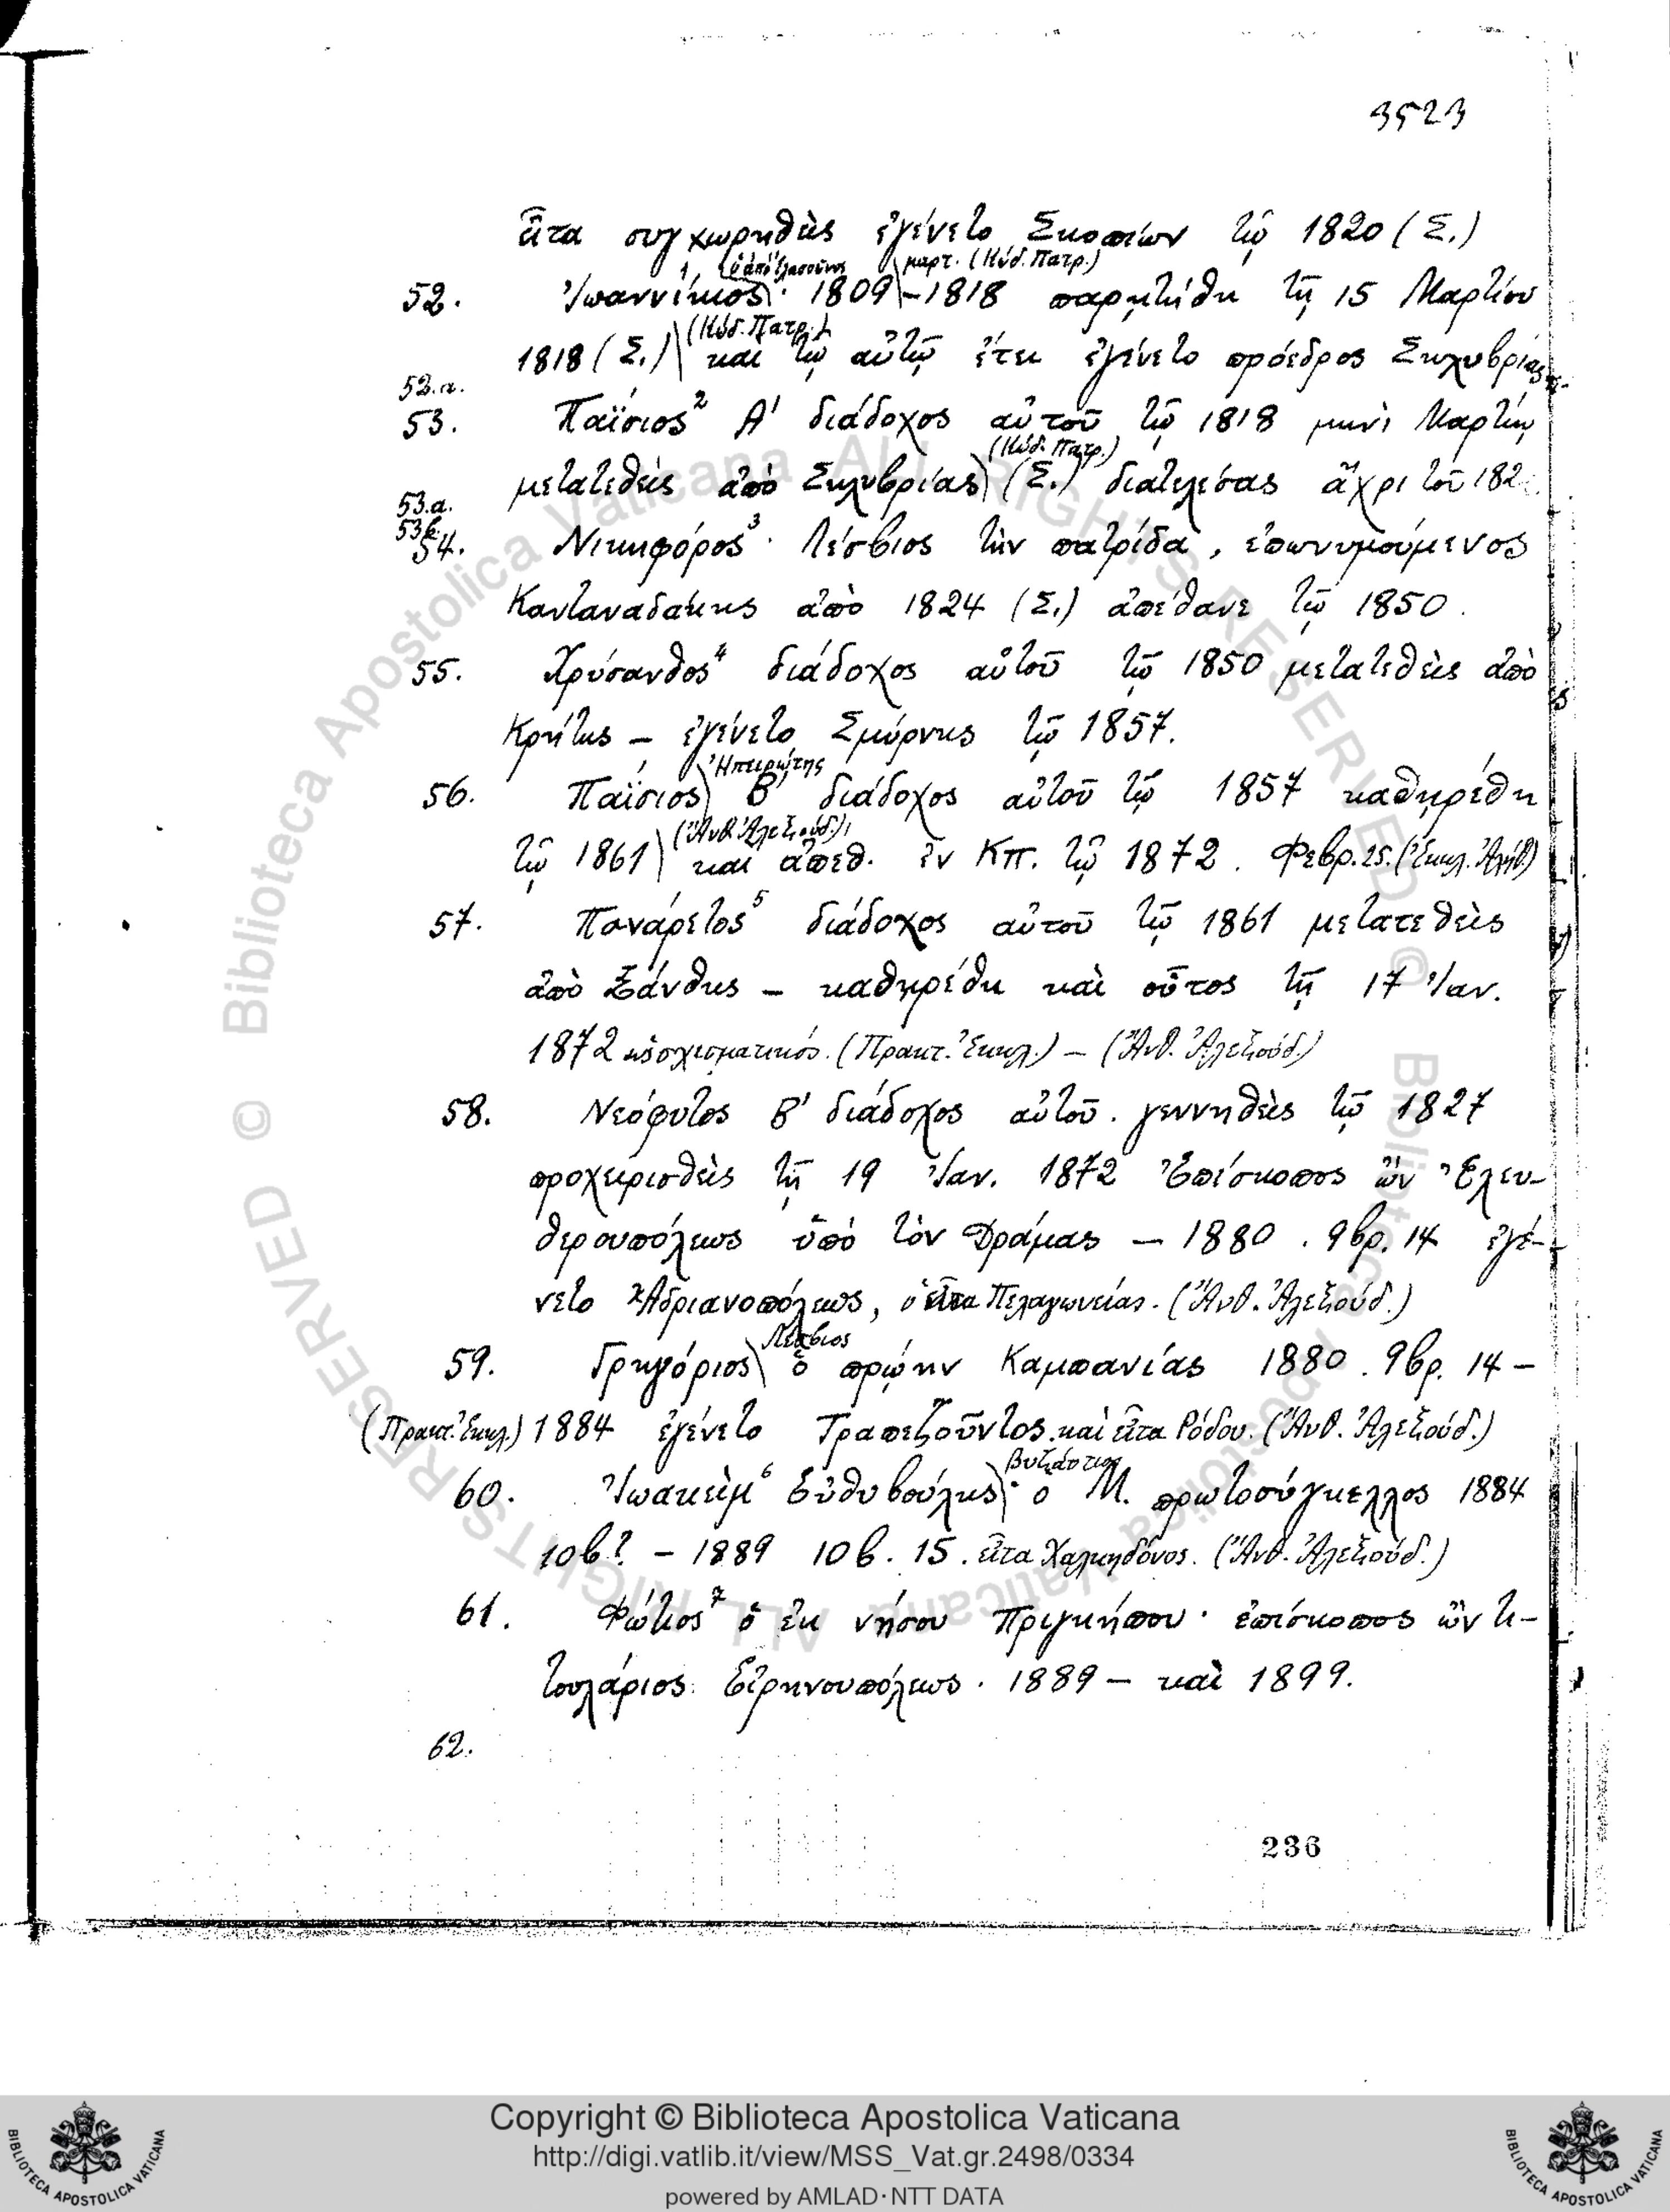 3523
εἶτα συγχωρηθεὶς ἐγένετο Σκοπίων τῷ 1820 (Σ.)
ὁ ἀπὸ Ἐλασσῶνος μαρτ. (Κώδ. Πατρ.)
52. Ἰωαννίκιος¹· 1809-1818 παρῃτήθη τῇ 15 Μαρτίου
(Κώδ. Πατρ.)
1818 (Σ.) καὶ τῷ αὐτῷ ἔτει ἐγένετο πρόεδρος Σηλυβρίας
52.α.
53. Παΐσιος² Α' διάδοχος αὐτοῦ τῷ 1818 μηνὶ Μαρτίῳ
(Κώδ. Πατρ.)
μετατεθεὶς ἀπὸ Σηλυβρίας (Σ.) διατελέσας ἄχρι τοῦ 182
53.α.
53β.
54. Νικηφόρος³· Λέσβιος τὴν πατρίδα, ἐπωνυμούμενος
Κανταναδάκης ἀπὸ 1824 (Σ.) ἀπέθανε τῷ 1850.
55. Χρύσανθος⁴ διάδοχος αὐτοῦ τῷ 1850 μετατεθεὶς ἀπὸ
Κρήτης – ἐγένετο Σμύρνης τῷ 1857.
Ἠπειρώτης
56. Παΐσιος Β' διάδοχος αὐτοῦ τῷ 1857 καθῃρέθη
(Ἄνθ. Ἀλεξιούδ.)
τῷ 1861 καὶ ἀπεθ. ἐν Κπ. τῷ 1872. Φεβρ. 25. (Ἐκκλ. Ἀλήθ)
57. Πανάρετος⁵ διάδοχος αὐτοῦ τῷ 1861 μετατεθεὶς
ἀπὸ Ξάνθης – καθῃρέθη καὶ οὗτος τῇ 17 Ἰαν.
1872 ὡς σχισματικός. (Πρακτ. Ἐκκλ.) – (Ἄνθ. Ἀλεξιούδ.)
58. Νεόφυτος Β' διάδοχος αὐτοῦ. γεννηθεὶς τῷ 1827
προχειρισθεὶς τῇ 19 Ἰαν. 1872 Ἐπίσκοπος ὢν Ἐλευ-
θερουπόλεως ὑπὸ τὸν Δράμας – 1880. 9βρ. 14 ἐγέ-
νετο Ἀδριανοπόλεως, ὁ εἶτα Πελαγωνείας. (Ἄνθ. Ἀλεξιούδ.)
Λέσβιος
59. Γρηγόριος ὁ πρῴην Καμπανίας 1880. 9βρ. 14 –
(Πρακτ. Ἐκκλ.) 1884 ἐγένετο Τραπεζοῦντος. καὶ εἶτα Ρόδου. (Ἄνθ. Ἀλεξιούδ.)
Βυζάντιος
60. Ἰωακεὶμ⁶ Εὐθυβούλης· ὁ Μ. πρωτοσύγκελλος 1884
10β? – 1889 10β. 15. εἶτα Χαλκηδόνος. (Ἄνθ. Ἀλεξιούδ.)
61. Φώτιος⁷ ὁ ἐκ νήσου Πριγκήπου· ἐπίσκοπος ὢν τι-
τουλάριος Εἰρηνουπόλεως. 1889 – καὶ 1899.
62.
236
Copyright © Biblioteca Apostolica Vaticana
http://digi.vatlib.it/view/MSS_Vat.gr.2498/0334
powered by AMLAD·NTT DATA
BIBLIOTECA APOSTOLICA VATICANA
BIBLIOTECA APOSTOLICA VATICANA
© Biblioteca Apostolica Vaticana ALL RIGHTS RESERVED
© Biblioteca Apostolica Vaticana ALL RIGHTS RESERVED